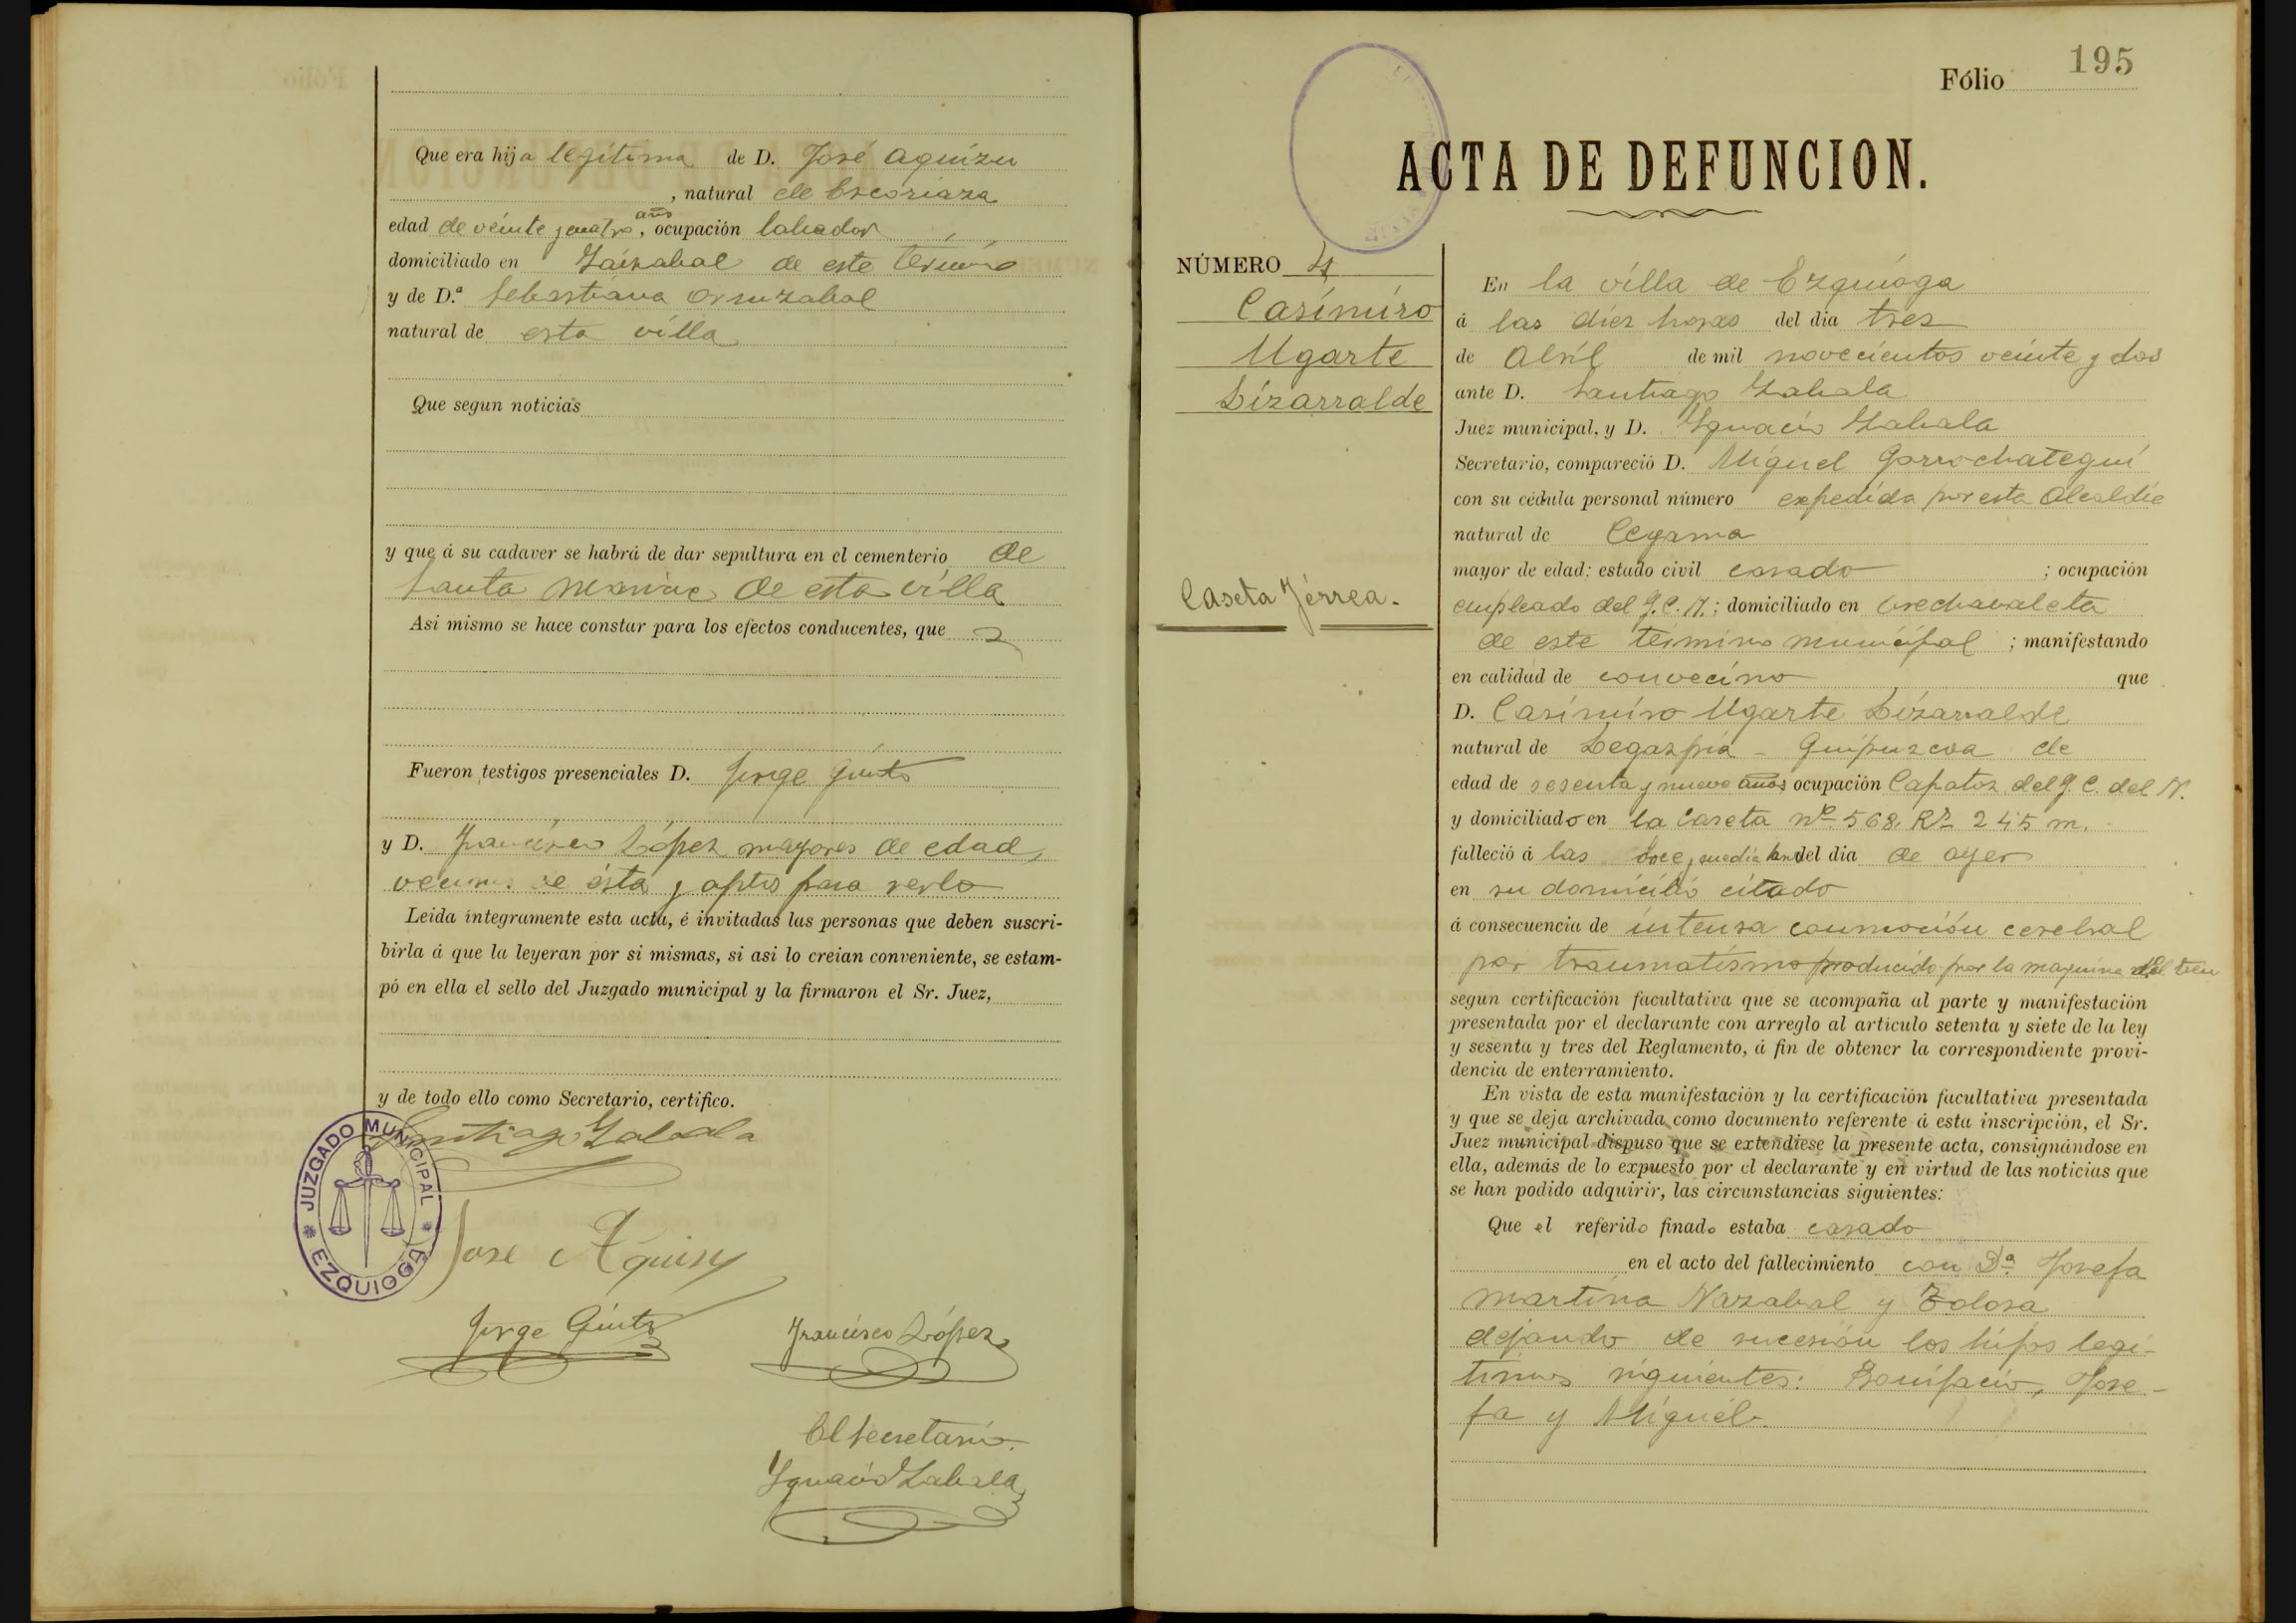 Que era hija legitima de D. José Aguizu
, natural de Escoriaza
edad de veinte y cuatro años, ocupación labrador
domiciliado en Zaizabal de este término
y de D.ª Sebastiana Oruzabal
natural de esta villa
Que segun noticias
y que á su cadaver se habrá de dar sepultura en el cementerio de
Santa Marina de esta villa
Asi mismo se hace constar para los efectos conducentes, que
Fueron testigos presenciales D. Jorge
y D. Francisco López mayores de edad,
vecinos de ésta y aptos para serlo
Leida íntegramente esta acta, é invitadas las personas que deben suscri-
birla á que la leyeran por si mismas, si asi lo creian conveniente, se estam-
pó en ella el sello del Juzgado municipal y la firmaron el Sr. Juez,
y de todo ello como Secretario, certifico.
Santiago Zabala
JUZGADO MUNICIPAL
EZQUIOGA
Jose
Jorge
Francisco López
El Secretario.
Ygnacio Zabala
Fólio 195
ACTA DE DEFUNCION.
NÚMERO 4
Casimiro
Ugarte
Lizarralde
Caseta Férrea.
En la villa de Ezquioga
á las diez horas del dia tres
de Abril de mil novecientos veinte y dos
ante D. Santiago Zabala
Juez municipal, y D. Ygnacio Zabala
Secretario, compareció D. Miguel Gorrochategui
con su cédula personal número expedida por esta Alcaldia
natural de Cegama
mayor de edad; estado civil casado ; ocupación
empleado del F. C. N.; domiciliado en Orechavaleta
de este termino municipal ; manifestando
en calidad de convecino que
D. Casimiro Ugarte Lizarralde
natural de Legazpia - Guipuzcoa de
edad de sesenta y nueve años ocupación Capataz del F. C. del N.
y domiciliado en la Caseta nº 568, Kº 245 m.
falleció á las doce y media horas del dia de ayer
en su domicilio citado
á consecuencia de intensa conmoción cerebral
por traumatismo producido por la maquina del tren
segun certificación facultativa que se acompaña al parte y manifestación
presentada por el declarante con arreglo al artículo setenta y siete de la ley
y sesenta y tres del Reglamento, á fin de obtener la correspondiente provi-
dencia de enterramiento.
En vista de esta manifestación y la certificación facultativa presentada
y que se deja archivada como documento referente á esta inscripción, el Sr.
Juez municipal dispuso que se extendiese la presente acta, consignándose en
ella, además de lo expuesto por el declarante y en virtud de las noticias que
se han podido adquirir, las circunstancias siguientes:
Que el referido finado estaba casado
en el acto del fallecimiento con D.ª Josefa
Martina Nazabal y Zolosa
dejando de sucesión los hijos legi-
timos siguientes: Bonifacio, Jose-
fa y Miguel.